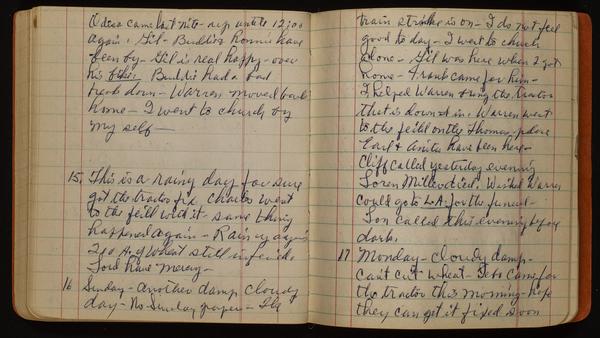 came last nite - up until 12;00
again. Gil - Buddie & Ronnie have
been by - Gil is real happy - over
his Buddie had a bad
break down - Warren moved back
home - I went to church by
my self -
15. This is a rainy day for sure
got the tractor fix. Charles went
to the feild with it - same thing
happened again - Rain again
200 A. of Wheat still in feild
Lord have mercy -
16 Sunday - Another damp cloudy
day - No Sunday paper - The
train strike is on - I do not feel
good to day - I went to church
alone - Gil was here when I got
home - Frank came for him -
I helped Warren bring the tractor
that is down in. Warren went
to the feild on the Thomas place
Earl & Anita have been here -
Cliff called yesterday evening
Loren Miller died. Wished Warren
could go to L.A. for the funeral -
Jon called this evening before
dark.
17 Monday - Cloudy damp -
can't cut wheat - came for
the tractor this morning - hope
they can get it fixed soon